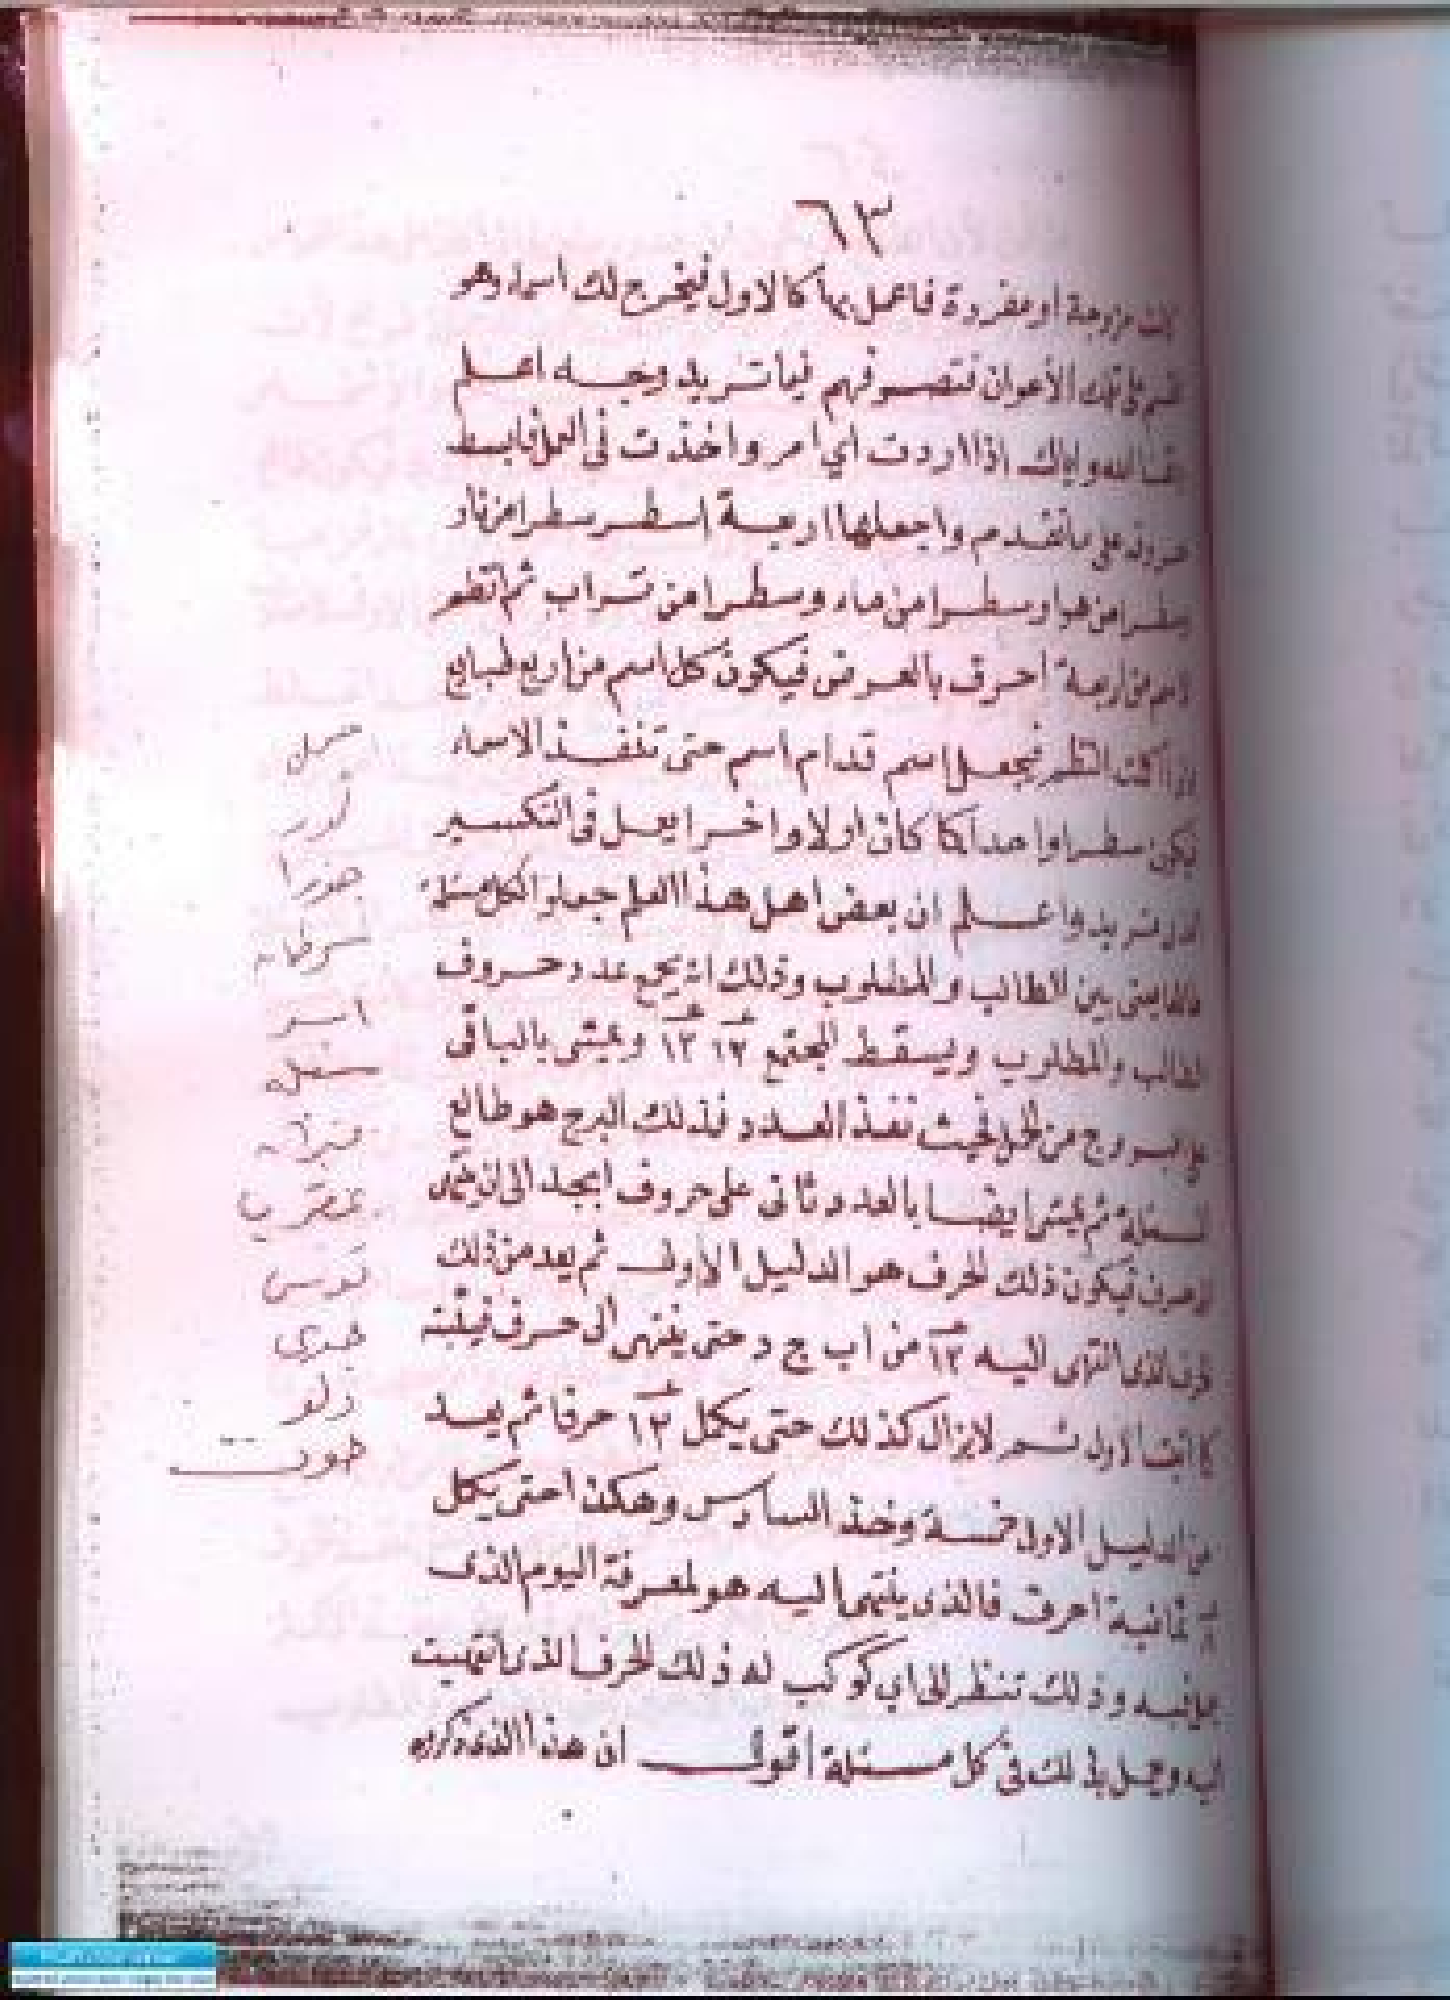 ٦٣
مزوجة او مفردة فاعمل بها كالاول فيخرج لك اسما وهو
تلك الأعوان فتصرفهم فيما تريد وجه اعلم
الله واياك اذا اردت اي امر واخذت في العمل فابسط
على ما تقدم واجعلها اربعة اسطر سطرا من نار
وسطرا من هوا وسطرا من ماء وسطرا من تراب ثم انظم
اسم من اربعة احرف بالعرض فيكون كل اسم من اربع طبايع
النظم فيجعل اسم قدام اسم حتى تنفذ الاسماء
سطرا واحدا كما كان اولا واخرا يعمل في التكسير
تريد واعلم ان بعض اهل هذا العلم جعلوا لكل مسئلة
بين الطالب والمطلوب وذلك انه يجمع عدد حروف
الطالب والمطلوب ويسقط المجتمع ١٢ ١٢ ويمشي بالباقي
من الحمل فحيث نفذ العدد فذلك البرج هو طالع
ثم يمشي ايضا بالعدد ثاني على حروف ابجد الى ان ينتهي
فيكون ذلك الحرف هو الدليل الاول ثم يعد من ذلك
الذي انتهى اليه ١٢ من ا ب ج د حتى ينتهي الى حرف فيثبته
الاول ثم لايزال كذلك حتى يكمل ١٢ حرفا ثم يعد
من الدليل الاول خمسة وخذ السادس وهكذا حتى يكمل
ثمانية احرف فالذي ينتهي اليه هو لمعرفة اليوم الذي
وذلك تنظر الى اي كوكب له ذلك الحرف الذي انتهيت
اليه ويعمل بذلك في كل مسئلة اقول ان هذا الذي ذكره
حمل
ثور
جوزا
سرطان
اسد
سنبله
ميزان
عقرب
قوس
جدي
دلو
حوت